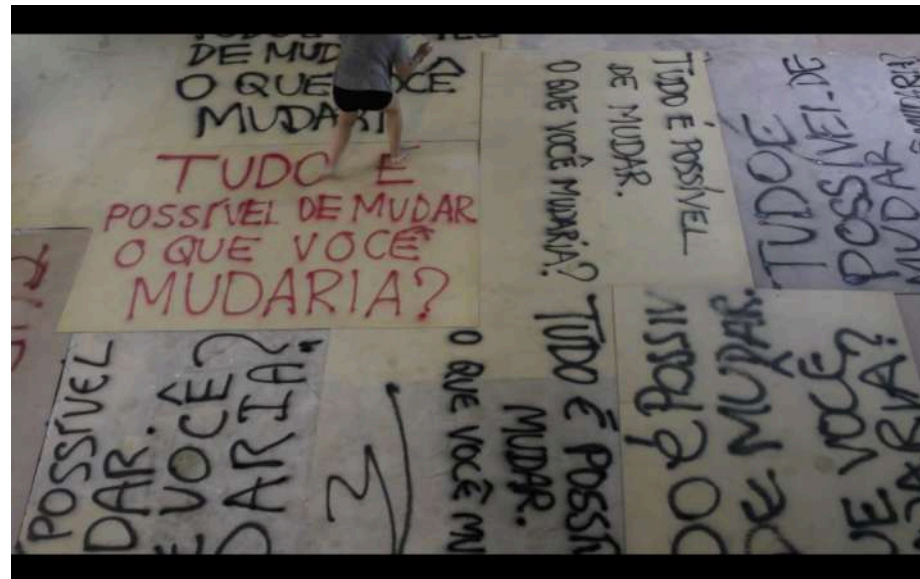 DE MUD
O QUE VOCÊ
MUDARI
TUDO É
POSSÍVEL DE MUDAR
O QUE VOCÊ
MUDARIA?
TUDO É POSSÍVEL
DE MUDAR.
O QUE VOCÊ MUDARIA?
TUDO E
POSSÍVEL DE
MUDAR
POSSÍVEL
DAR.
E VOCÊ?
DARIA.
TUDO É POSSÍ
MUDAR.
O QUE VOCÊ M
DO É POSSIV
DE MUDAR.
UE VOCÊ
DARIA?